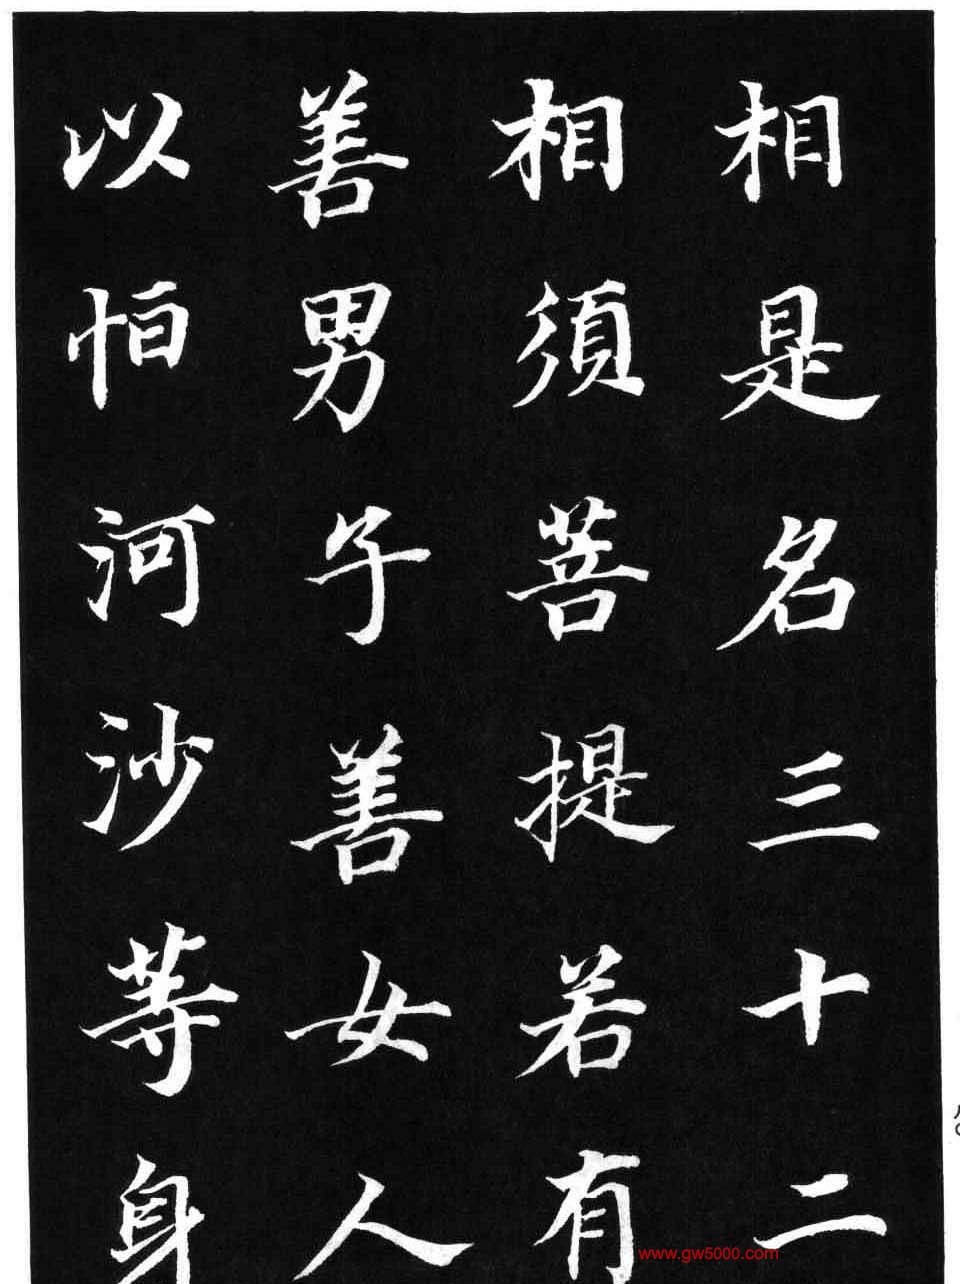 相是名三十二
相須菩提若有
善男子善女人
以恒河沙等身
www.gw5000.com